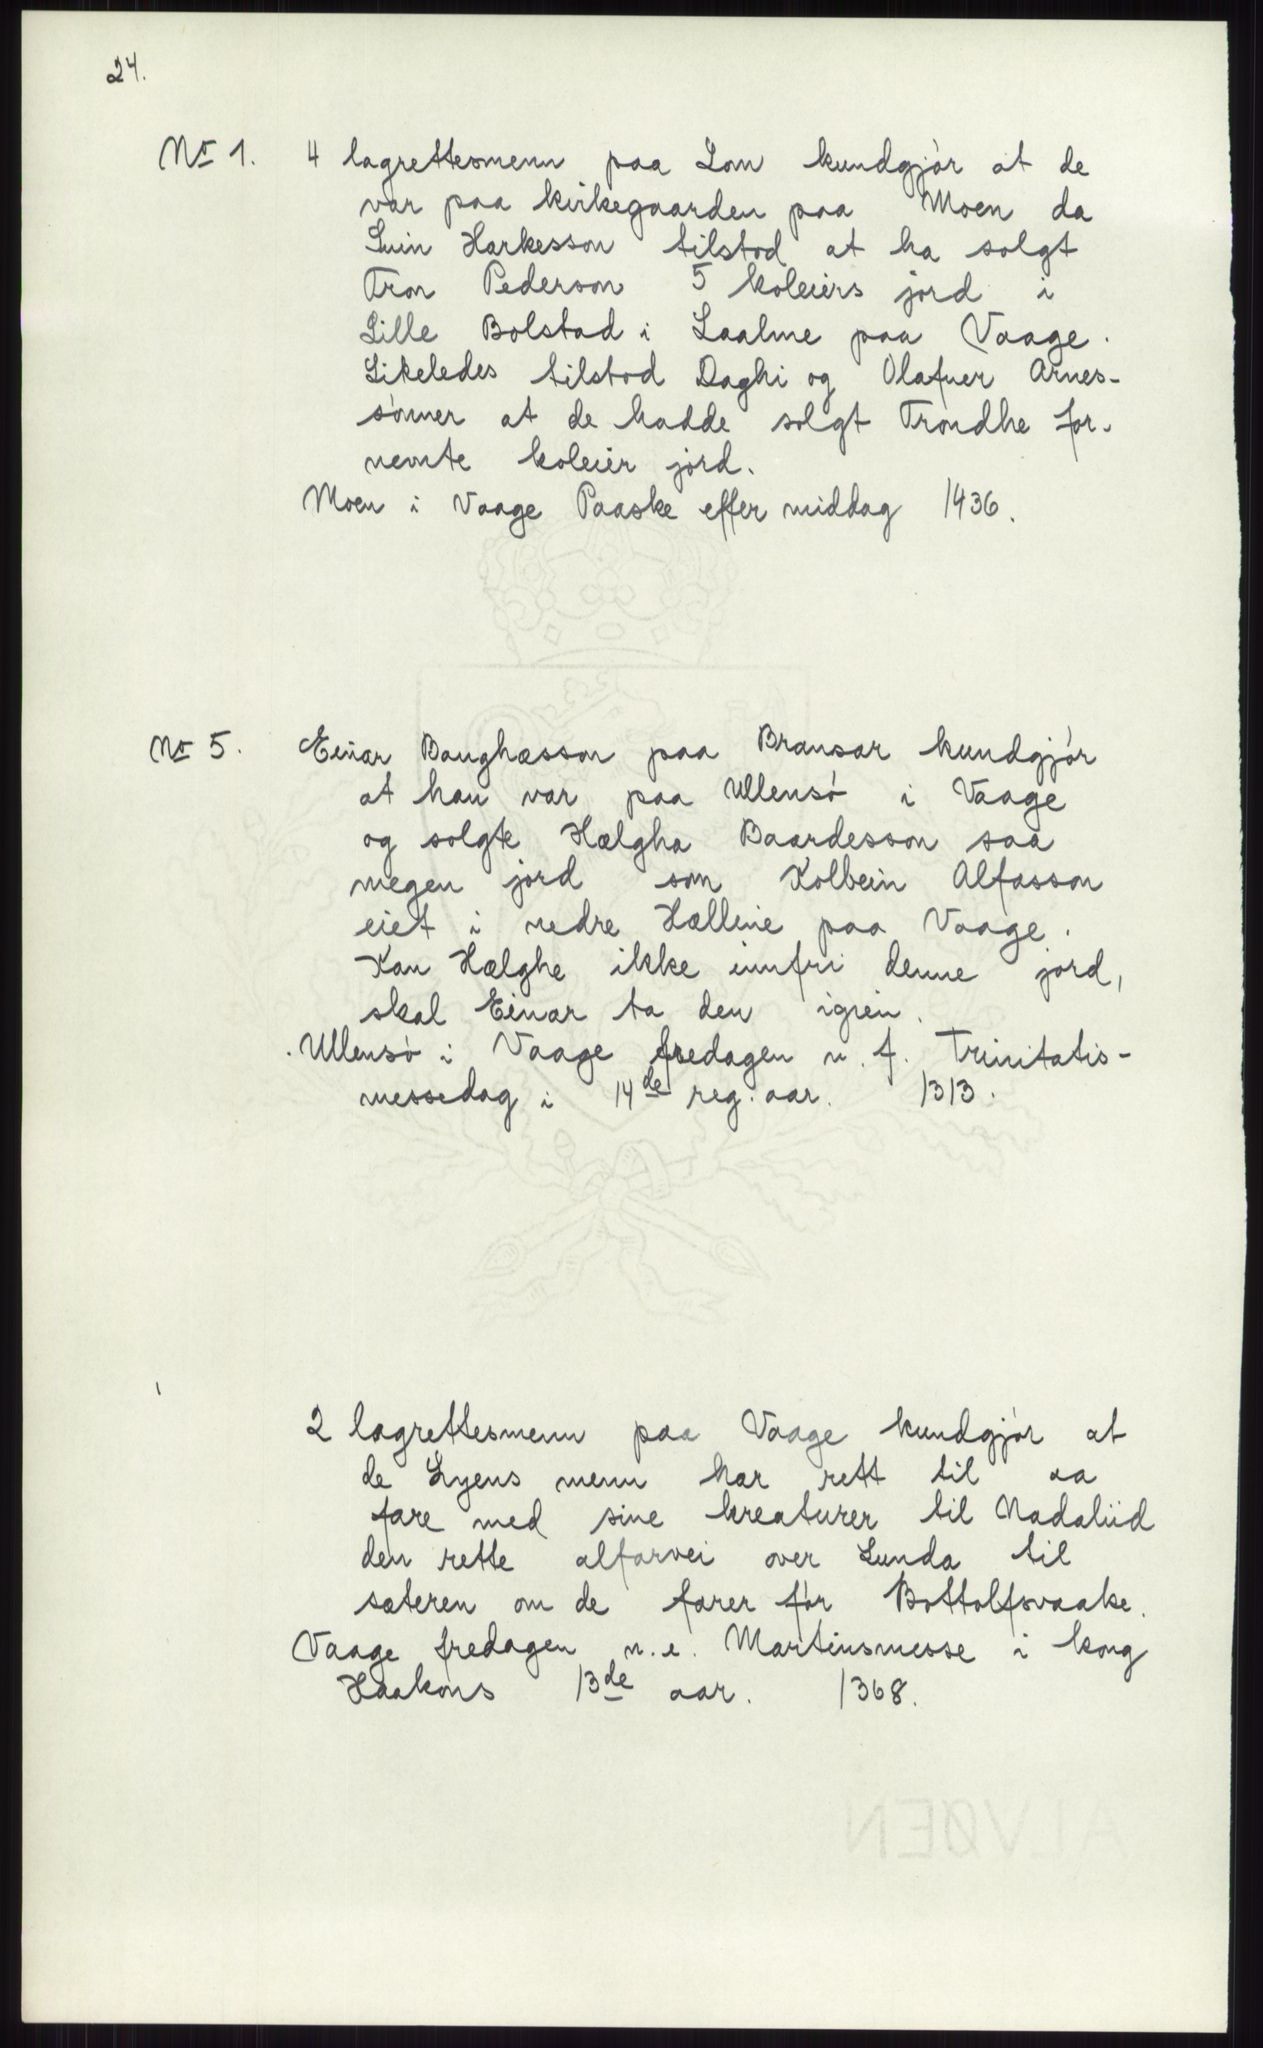 24.
Nr 1. 4 lagrettesmenn paa Lom kundgjør at de
var paa kirkegaarden paa Moen da
Harkesson tilstod at ha solgt
Tron Pederson 5 koleiers jord i
Lille Bolstad i Laalme paa Vaage.
Likeledes tilstod Daghi og Olafuer Arnes-
sønner at de hadde solgt Trondhe for-
nemte koleier jord.
Moen i Vaage Paaske efter middag 1436.
Nr 5. Einar Baughæsson paa Bransar kundgjør
at han var paa Ullensø i Vaage
og solgte Hælgha Baardesson saa
megen jord som Kolbein Alfasson
eiet i nedre Hælline paa Vaage.
Kan Hælghe ikke innfri denne jord,
skal Einar ta den igjen.
Ullensø i Vaage fredagen n. f. Trinitatis-
messedag i 14de reg. aar. 1313.
2 lagrettesmenn paa Vaage kundgjør at
de Lyens menn har rett til aa
fare med sine kreaturer til Nadaliid
den rette alfarvei over Lunda til
sæteren om de farer før Bottolfsvaake.
Vaage fredagen n. e. Martinsmesse i kong
Haakons 13de aar. 1368.
ALVØEN